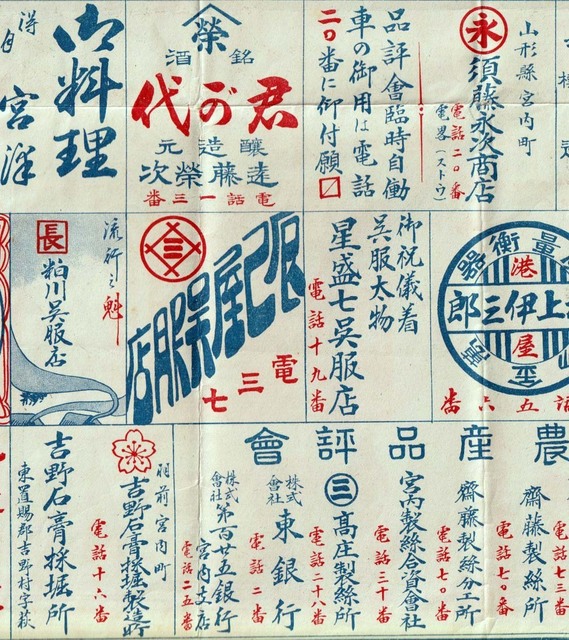 永
山形縣宮内町
須藤永次商店
電話二〇番
電畧(ストウ)
品評會臨時自働
車の御用は電話
二〇番に御付願〼
榮
銘酒
君が代
釀造元
遠藤榮次
電話一三番
御料理
宮澤
量衡器
港屋
上伊三郎
話五六番
御祝儀着
呉服太物
星盛七呉服店
電話十九番
三
張記屋呉服店
電三七
流行之魁
長
粕川呉服店
農産品評會
齋藤製絲所
電話七〇番
齋藤製絲分工所
電話七〇番
宮内製絲合資會社
電話三十番
三
髙庄製絲所
電話二十八番
株式會社
東銀行
電話二番
株式會社
第百廿五銀行
宮内支店
電話二五番
羽前宮内町
吉野石膏採掘製造所
電話十六番
吉野石膏採掘所
東置賜郡吉野村字萩